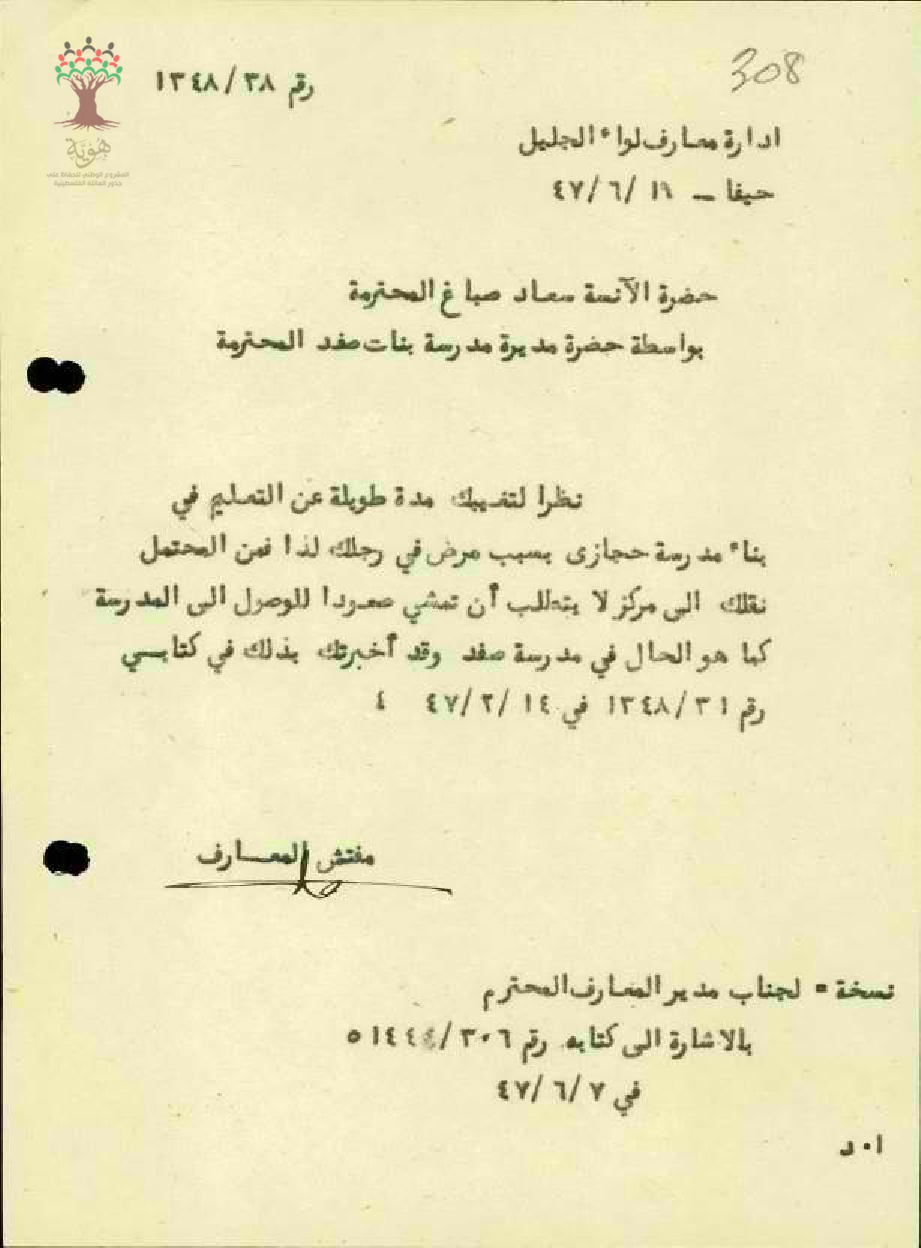 308
رقم ١٣٤٨/٣٨
هوية
المشروع الوطني للحفاظ على
جذور العائلة الفلسطينية
ادارة معارف لواء الجليل
حيفا – ١٩/٦/٤٧
حضرة الآنسة سعاد صباغ المحترمة
بواسطة حضرة مديرة مدرسة بنات صفد المحترمة
نظرا لتغيبك مدة طويلة عن التعليم في
بناء مدرسة حجازى بسبب مرض في رجلك لذا فمن المحتمل
نقلك الى مركز لا يتطلب أن تمشي صعودا للوصول الى المدرسة
كما هو الحال في مدرسة صفد وقد أخبرتك بذلك في كتابي
رقم ١٣٤٨/٣١ في ١٤/٢/٤٧ ٤
مفتش المعارف
نسخة = لجناب مدير المعارف المحترم
بالاشارة الى كتابه رقم
في ٧/٦/٤٧
ا٠د